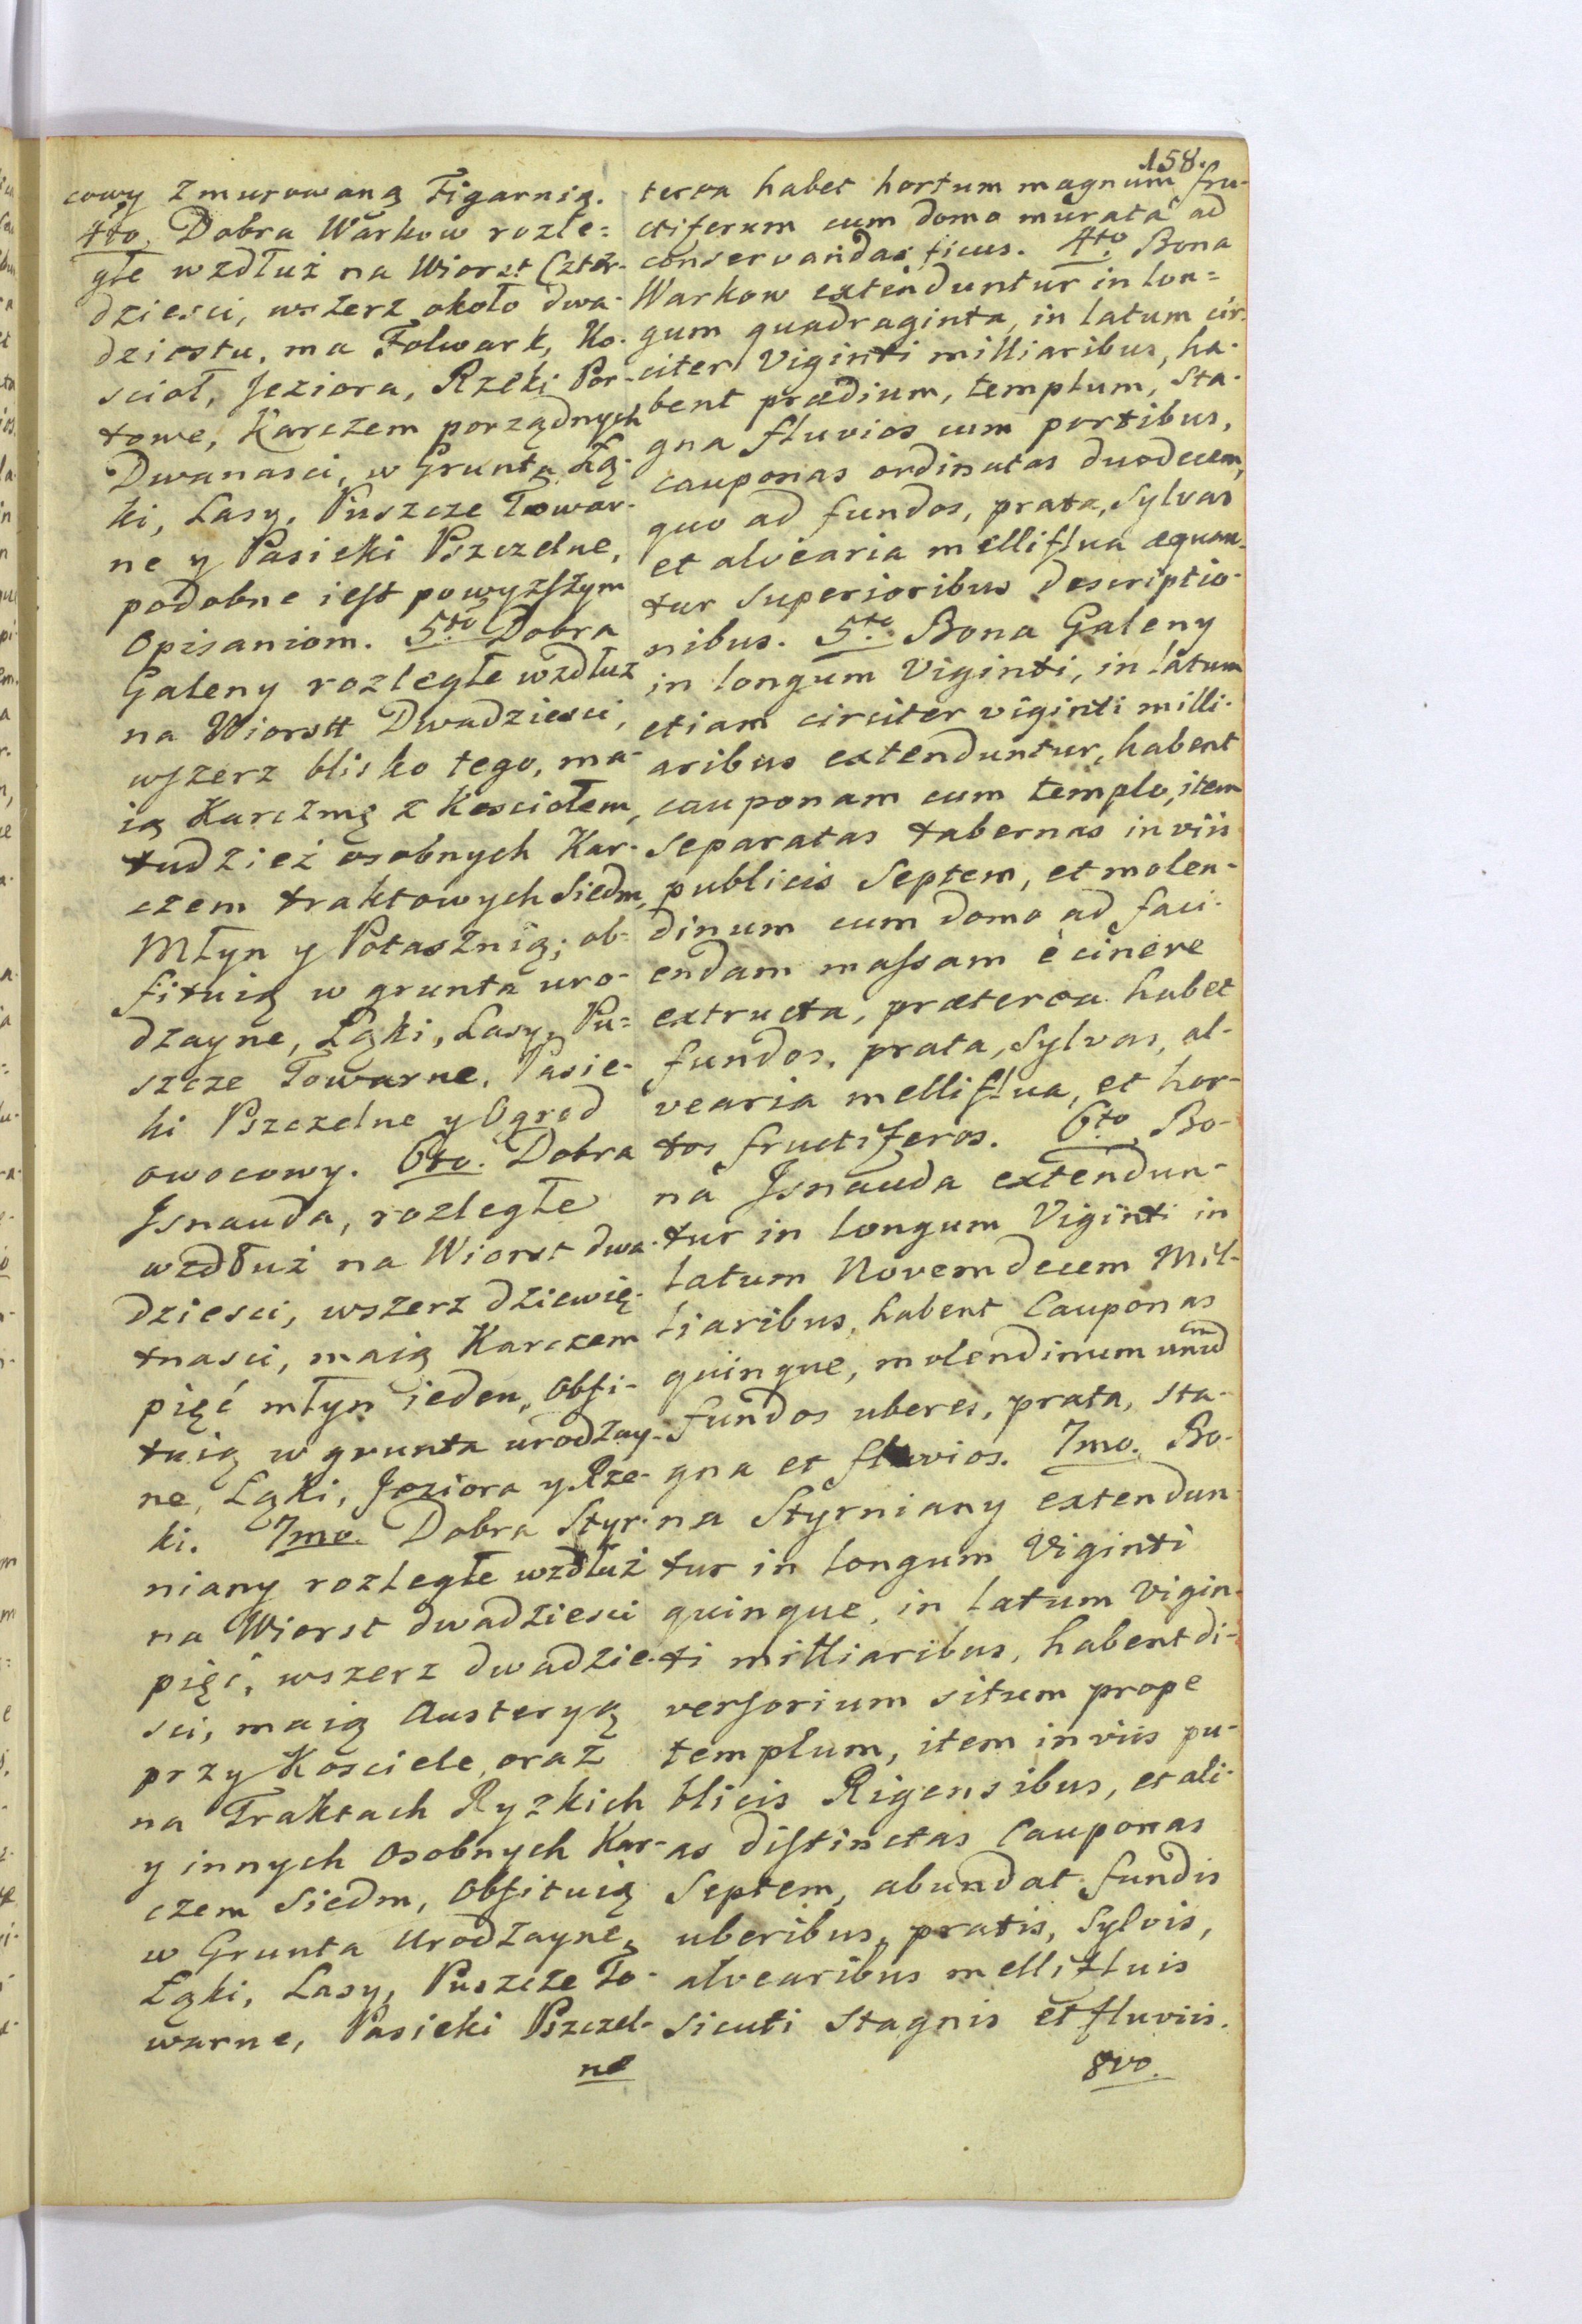 158.
cowy z murowaną Figarnią.
4to. Dobra Warkow rozle=
głe wzdłuż na Wiorst Czter-
dziesci, wszerz około dwa-
dziestu, ma Folwark, Ko-
scioł, Jeziora, Rzeki Por-
towe, Karczem porządnych
Dwanasci, w Grunta, Łą-
ki, Lasy, Puszcze Towar-
ne y Pasieki Pszczelne,
podobne iest powyższym
Opisaniom. 5to Dobra
Galeny rozległe wzdłuż
na Wiorstt Dwadziesci,
wszerz blisko tego, ma-
ią Karczmę z Kosciołem,
tudzież osobnych Kar-
czem traktowych Siedm,
Młyn y Potasznią; ob-
fituią w grunta uro-
dzayne, Łąki, Lasy, Pu=
szcze Towarne, Pasie-
ki Pszczelne y Ogrod
owocowy. 6to. Dobra
Jsnauda, rozległe
wzdłuż na Wiorst dwa-
dziesci, wszerz dziewię-
tnasci, maią Karczem
pięć młyn ieden, Obfi-
tuią w grunta urodzay-
ne, Łąki, Jeziora y Rze-
ki. 7mo. Dobra Styr-
niany rozległe wzdłuż
na Wiorst dwadziesci
pięć, wszerz dwadzie-
sci, maią Austeryą
przy Kosciele, oraz
na Traktach Ryzkich
y innych Osobnych Kar-
czem Siedm, Obfituią
w Grunta Urodzayne,
Łąki, Lasy, Puszcze To-
warne, Pasieki Pszczel-
ne
terea habet hortum magnum fru-
ctiferum cum domo murata ad
conservandas ficus. 4to. Bona
Warkow extenduntur in lon=
gum quadraginta, in latum cir-
citer Viginti milliaribus, ha-
bent prædium, templum, sta-
gna fluvios cum portibus,
cauponas ordinatas duodecem,
quo ad fundos, prata, Sylvas
et alvearia melliflua æquan-
tur Superioribus descriptio-
nibus. 5to. Bona Galeny
in longum Viginti, in latum
etiam circiter viginti milli-
aribus extenduntur, habent
cauponam cum templo, item
separatas tabernas in viis
publicis Septem, et molen-
dinum cum domo ad faci-
endam massam è cinere
extructa, præterea habet
fundos, prata, Sylvas, al-
vearia melliflua, et hor-
tos fructiferos. 6to. Bo-
na Jsnauda extendun-
tur in longum Viginti in
latum Novemdecem Mil-
liaribus, habent Cauponas
quinque, molendinum unum
fundos uberes, prata, sta-
gna et fluvios. 7mo. Bo-
na Styrniany extendun-
tur in longum Viginti
quinque, in latum Vigin-
ti milliaribus, habent di-
versorium situm prope
templum, item in viis pu-
blicis Rigensibus, et ali-
as distinctas Cauponas
Septem, abundat fundis
uberibus, pratis, Sylvis,
alvearibus mellifluis
Sicuti Stagnis et fluviis.
8vo.